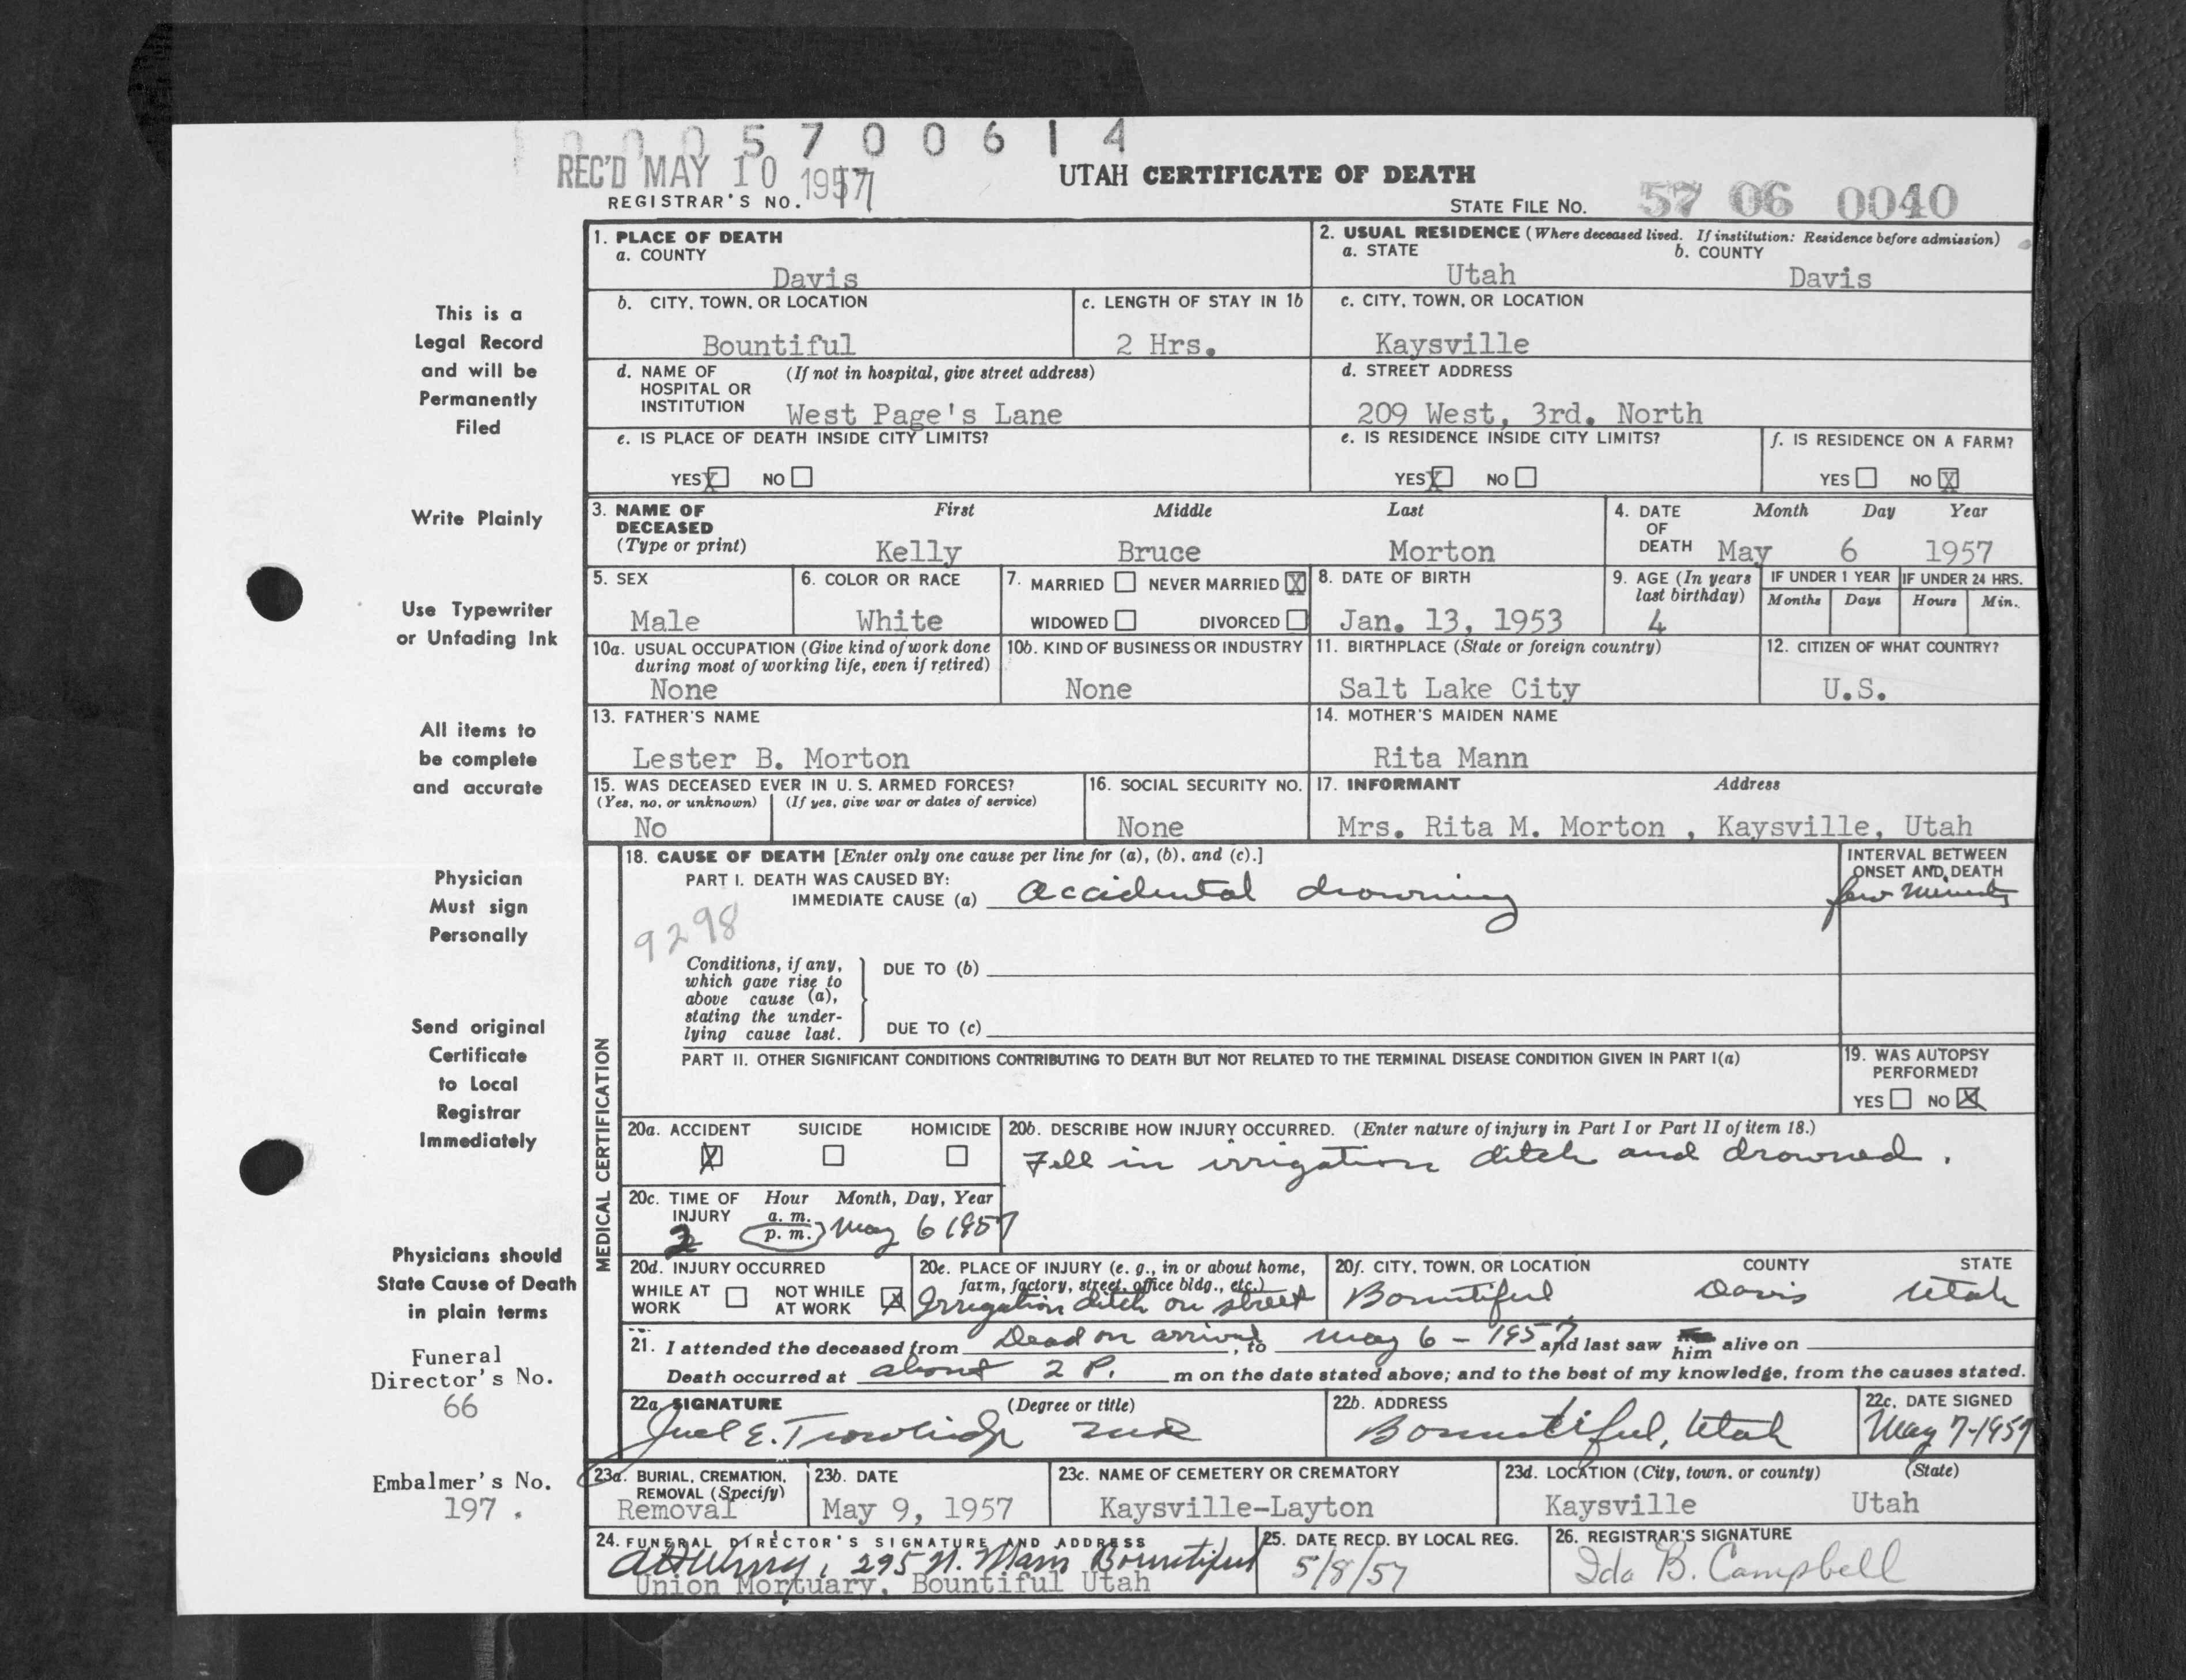 0 0 0 5 7 0 0 6 1 4
REC'D MAY 10 1957
UTAH CERTIFICATE OF DEATH
REGISTRAR'S NO.
STATE FILE NO. 57 06 0040
This is a
Legal Record
and will be
Permanently
Filed
Write Plainly
Use Typewriter
or Unfading Ink
All items to
be complete
and accurate
Physician
Must sign
Personally
Send original
Certificate
to Local
Registrar
Immediately
Physicians should
State Cause of Death
in plain terms
Funeral
Director's No.
66
Embalmer's No.
197 .
1. PLACE OF DEATH
a. COUNTY
Davis
2. USUAL RESIDENCE (Where deceased lived. If institution: Residence before admission)
a. STATE b. COUNTY
Utah Davis
b. CITY, TOWN, OR LOCATION
Bountiful
c. LENGTH OF STAY IN 1b
2 Hrs.
c. CITY, TOWN, OR LOCATION
Kaysville
d. NAME OF (If not in hospital, give street address)
HOSPITAL OR
INSTITUTION West Page's Lane
d. STREET ADDRESS
209 West, 3rd. North
e. IS PLACE OF DEATH INSIDE CITY LIMITS?
YES X NO
e. IS RESIDENCE INSIDE CITY LIMITS?
YES X NO
f. IS RESIDENCE ON A FARM?
YES NO X
3. NAME OF DECEASED (Type or print)
First Middle Last
Kelly Bruce Morton
4. DATE OF DEATH
Month Day Year
May 6 1957
5. SEX
Male
6. COLOR OR RACE
White
7. MARRIED NEVER MARRIED X
WIDOWED DIVORCED
8. DATE OF BIRTH
Jan. 13, 1953
9. AGE (In years last birthday)
4
IF UNDER 1 YEAR IF UNDER 24 HRS.
Months Days Hours Min.
10a. USUAL OCCUPATION (Give kind of work done
during most of working life, even if retired)
None
10b. KIND OF BUSINESS OR INDUSTRY
None
11. BIRTHPLACE (State or foreign country)
Salt Lake City
12. CITIZEN OF WHAT COUNTRY?
U.S.
13. FATHER'S NAME
Lester B. Morton
14. MOTHER'S MAIDEN NAME
Rita Mann
15. WAS DECEASED EVER IN U. S. ARMED FORCES?
(Yes, no, or unknown) (If yes, give war or dates of service)
No
16. SOCIAL SECURITY NO.
None
17. INFORMANT Address
Mrs. Rita M. Morton , Kaysville, Utah
MEDICAL CERTIFICATION
18. CAUSE OF DEATH [Enter only one cause per line for (a), (b), and (c).]
PART I. DEATH WAS CAUSED BY:
IMMEDIATE CAUSE (a) Accidental drowning
INTERVAL BETWEEN
ONSET AND DEATH
few minutes
9298
Conditions, if any,
which gave rise to
above cause (a),
stating the under-
lying cause last.
DUE TO (b)
DUE TO (c)
PART II. OTHER SIGNIFICANT CONDITIONS CONTRIBUTING TO DEATH BUT NOT RELATED TO THE TERMINAL DISEASE CONDITION GIVEN IN PART I(a)
19. WAS AUTOPSY
PERFORMED?
YES NO X
20a. ACCIDENT SUICIDE HOMICIDE
X
20b. DESCRIBE HOW INJURY OCCURRED. (Enter nature of injury in Part I or Part II of item 18.)
Fell in irrigation ditch and drowned.
20c. TIME OF INJURY Hour Month, Day, Year
a. m.
2 p. m. May 6 1957
20d. INJURY OCCURRED
WHILE AT WORK NOT WHILE AT WORK X
20e. PLACE OF INJURY (e. g., in or about home,
farm, factory, street, office bldg., etc.)
Irrigation ditch on street
20f. CITY, TOWN, OR LOCATION COUNTY STATE
Bountiful Davis Utah
21. I attended the deceased from Dead on arrival, to May 6 - 1957 and last saw him alive on
Death occurred at about 2 P. m on the date stated above; and to the best of my knowledge, from the causes stated.
22a. SIGNATURE (Degree or title)
Juel E. Trowbridge MD
22b. ADDRESS
Bountiful, Utah
22c. DATE SIGNED
May 7-1957
23a. BURIAL, CREMATION,
REMOVAL (Specify)
Removal
23b. DATE
May 9, 1957
23c. NAME OF CEMETERY OR CREMATORY
Kaysville-Layton
23d. LOCATION (City, town, or county) (State)
Kaysville Utah
24. FUNERAL DIRECTOR'S SIGNATURE AND ADDRESS
295 N. Main Bountiful
Union Mortuary, Bountiful Utah
25. DATE RECD. BY LOCAL REG.
5/8/57
26. REGISTRAR'S SIGNATURE
Ida B. Campbell